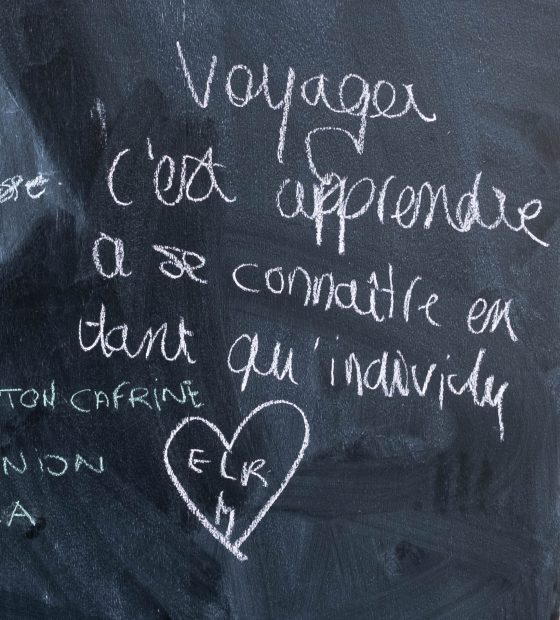 Voyager
c'est apprendre
à se connaître en
tant qu'individu
TON CAFRINE
NION
A
ELR
M